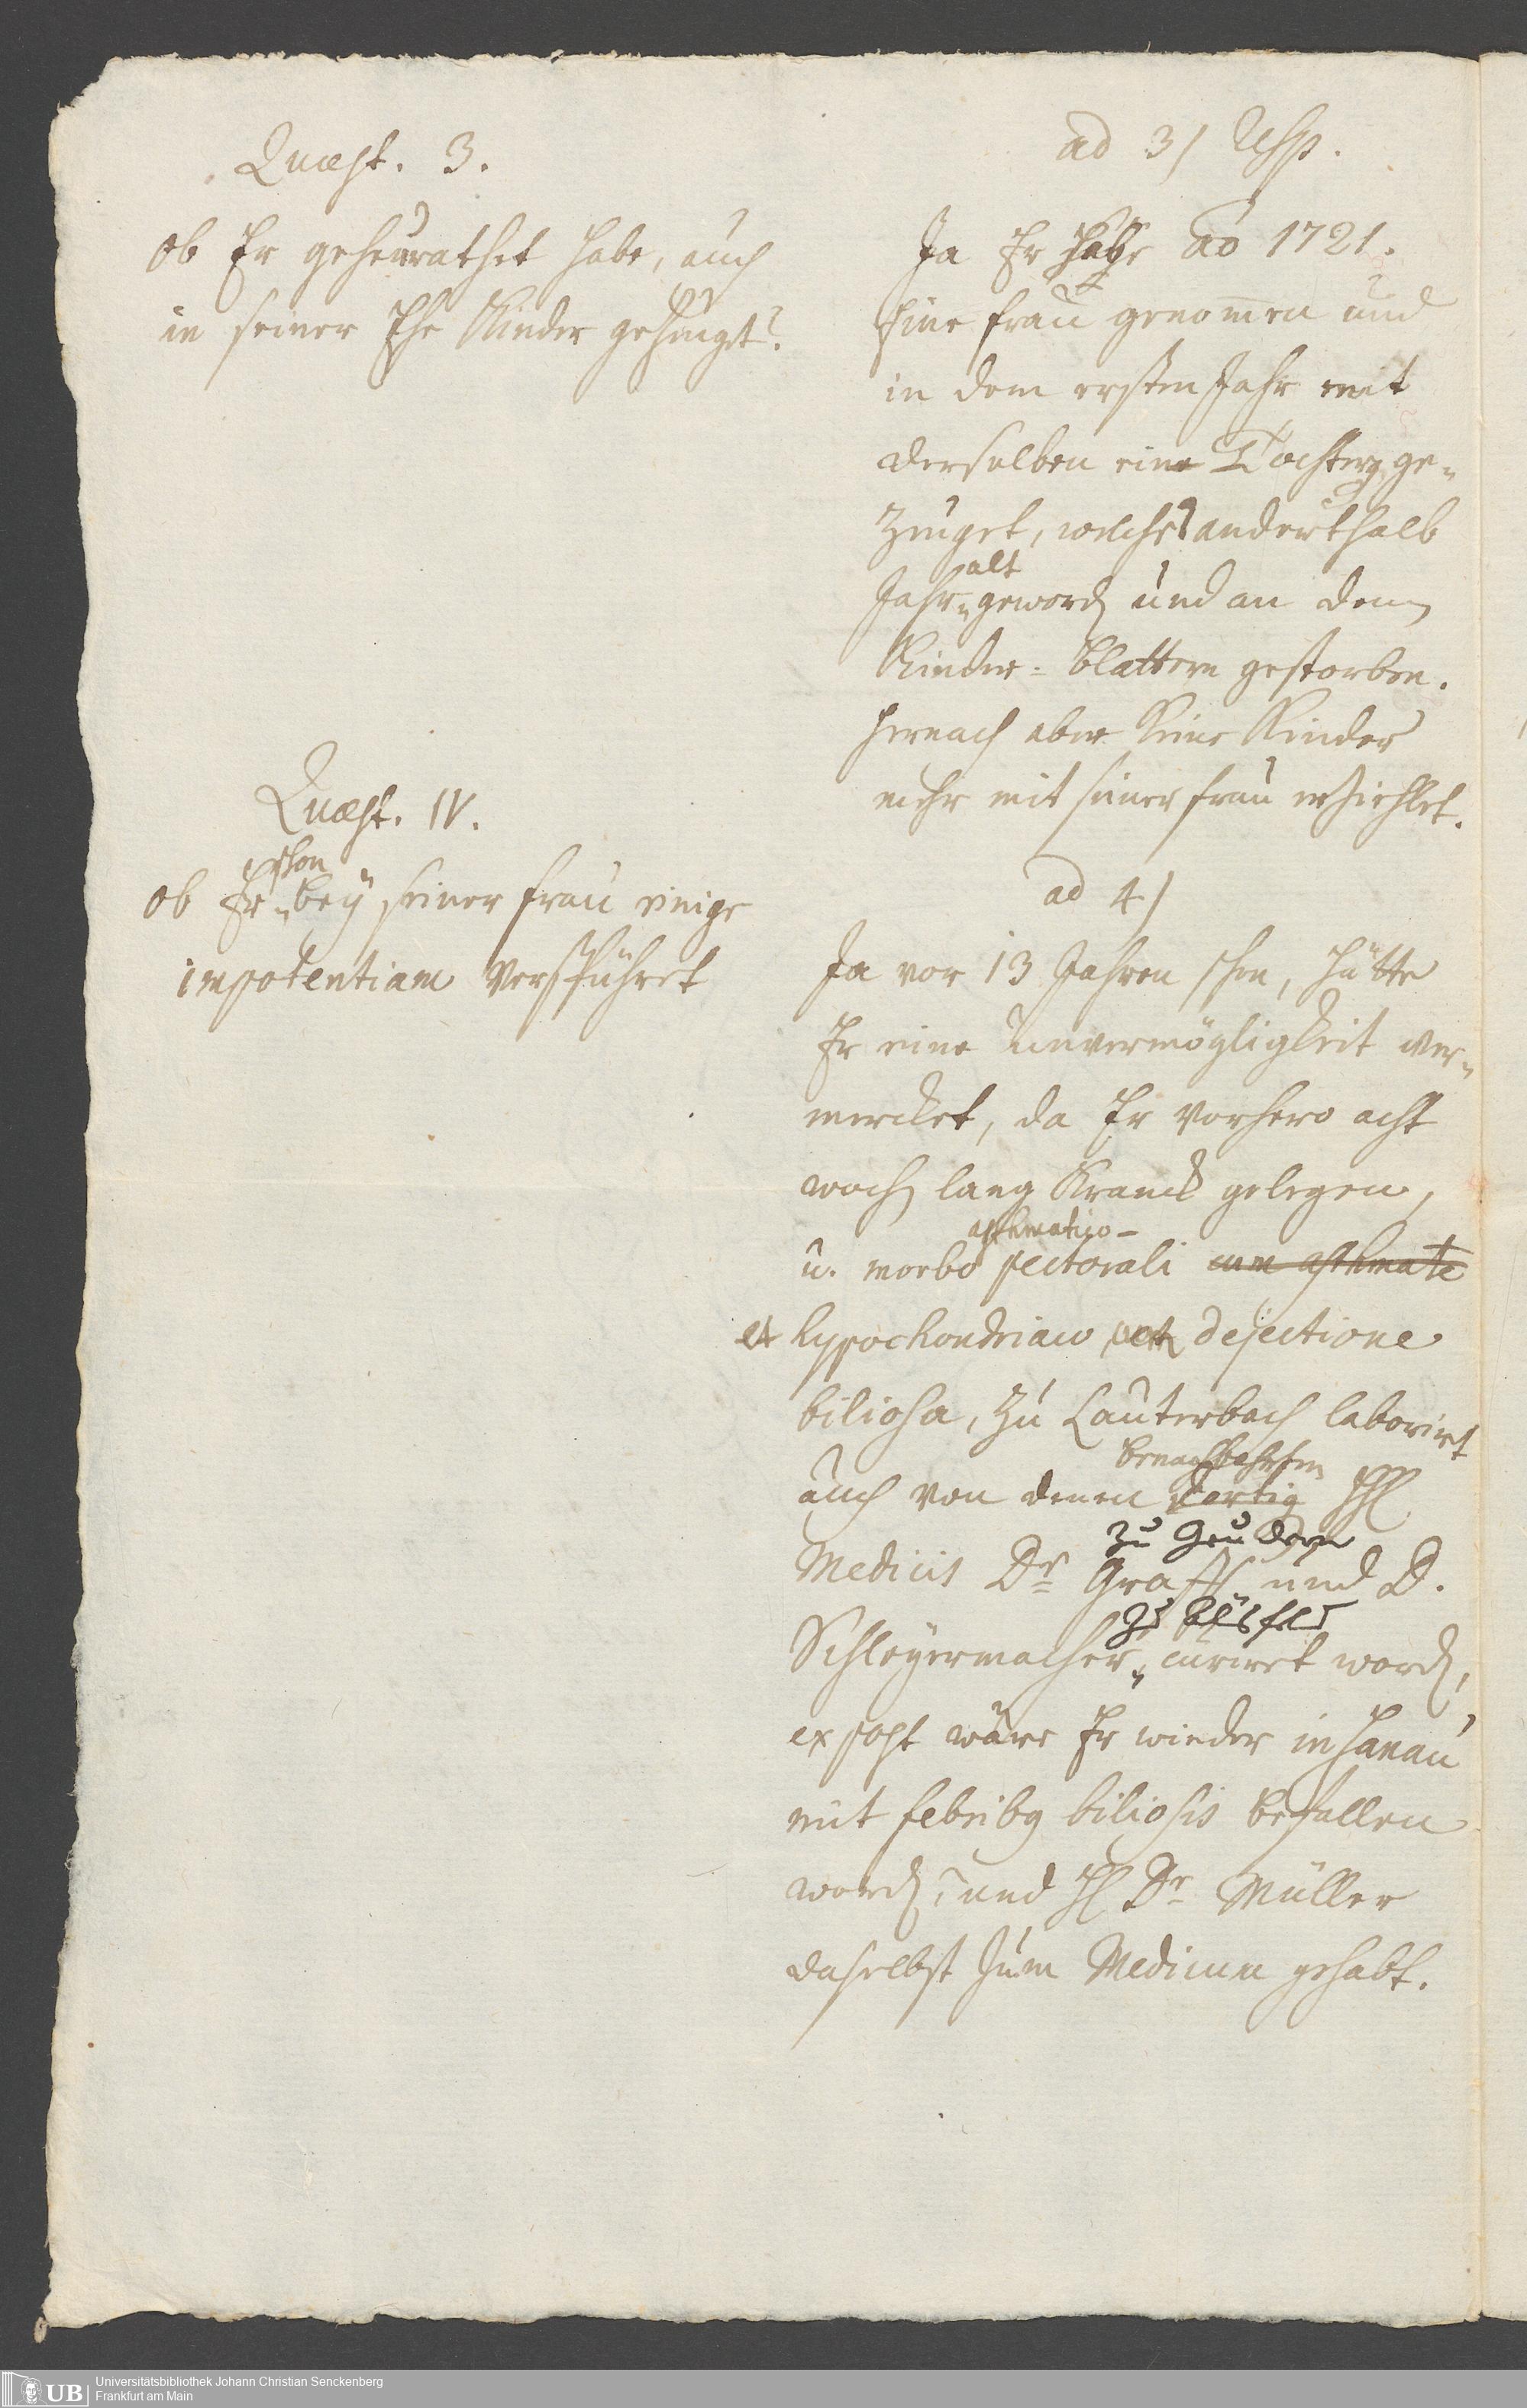 Quæst. 3.
ob Er geheurathet habe, auch
in seiner Ehe Kinder gezeuget?
ad 3) Resp.
Ja Er habe Ao 1721.
Eine Frau genommen und
in dem ersten Jahr mit
derselben eine Tochter ge-
zeuget, welche anderthalb
alt
Jahr geword und an den
Kinder-Blattern gestorben.
hernach aber keine Kinder
mehr mit seiner Frau erziehlet.
Quæst. IV.
schon
ob Er bey seiner Frau einige
impotentiam verspühret
ad 4)
Ja vor 13 Jahren schon, hätte
Er eine Unvermögligkeit ver-
mercket, da Er vorhero acht
woch lang Kranck gelegen,
asthmatico-
u. morbo pectorali cum asthmate
et hypochondriaco et dejectione
biliosa, zu Lauterbach laborirt
benachbahrten
auch von denen dortig HH
zu Geudern
Medicis Dr Graff und D.
zu Alsfeld
Schleyermacher curiret word,
ex post wäre Er wieder in Hanau
mit febribq biliosis befallen
word, und H Dr Müller
daselbst zum Medicum gehabt.
Universitätsbibliothek Johann Christian Senckenberg
Frankfurt am Main
UB